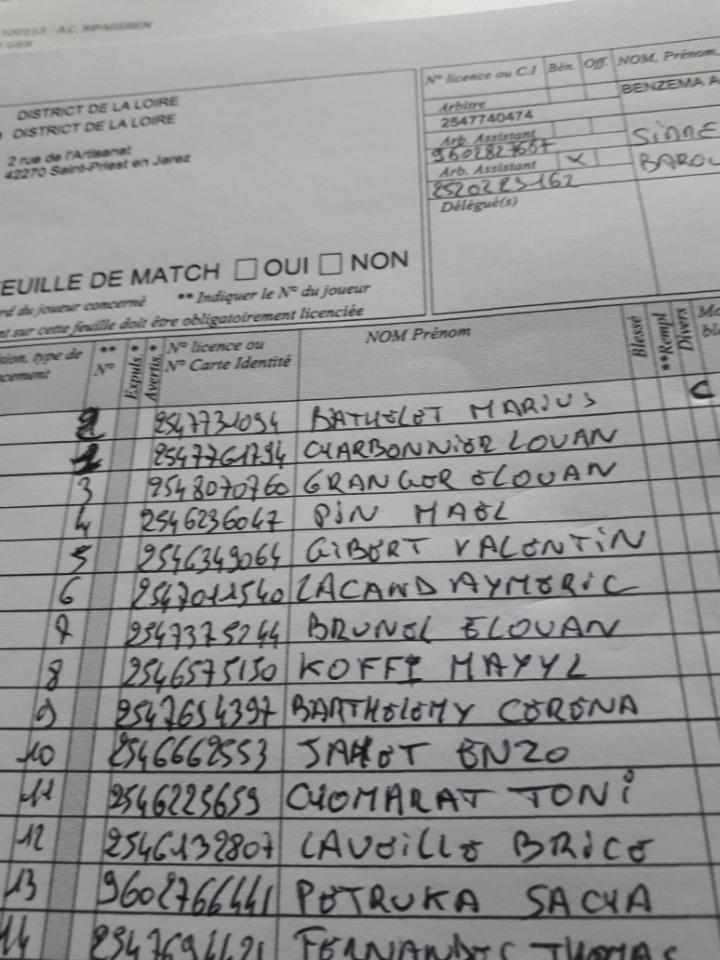 500153 - A.C. RIPAGERIEN
GIER
DISTRICT DE LA LOIRE
DISTRICT DE LA LOIRE
2 rue de l'Artisanat
42270 Saint-Priest en Jarez
N° licence ou C.I Bén. Off. NOM, Prénom,
Arbitre
2547740474 BENZEMA A
Arb. Assistant
9602827657
Arb. Assistant X
2520223162 BAROU
Délégué(s)
EUILLE DE MATCH OUI NON
rd du joueur concerné ** Indiquer le N° du joueur
nt sur cette feuille doit être obligatoirement licenciée
sion, type de
cement
** N° Expuls. * Avertis. * N° licence ou
N° Carte Identité NOM Prénom Blessé **Rempl Divers
2547731094 BATHELET MARIUS C
2547761794 CHARBONNIER LOUAN
3 2548070760 GRANGER ELOUAN
4 2546236047 PIN MAEL
5 2546349064 GIBERT VALENTIN
6 2547012540 LACAND AYMERIC
7 2547375244 BRUNEL ELOUAN
8 2546575150 KOFFI MAYYL
9 2547654397 BARTHELEMY CORONA
10 2546662553 JAMET ENZO
11 2546225659 CHOMARAT TONI
12 2546132807 LAVEILLE BRICE
13 9602766441 PETRUKA SACHA
14 FERNANDES THOMAS